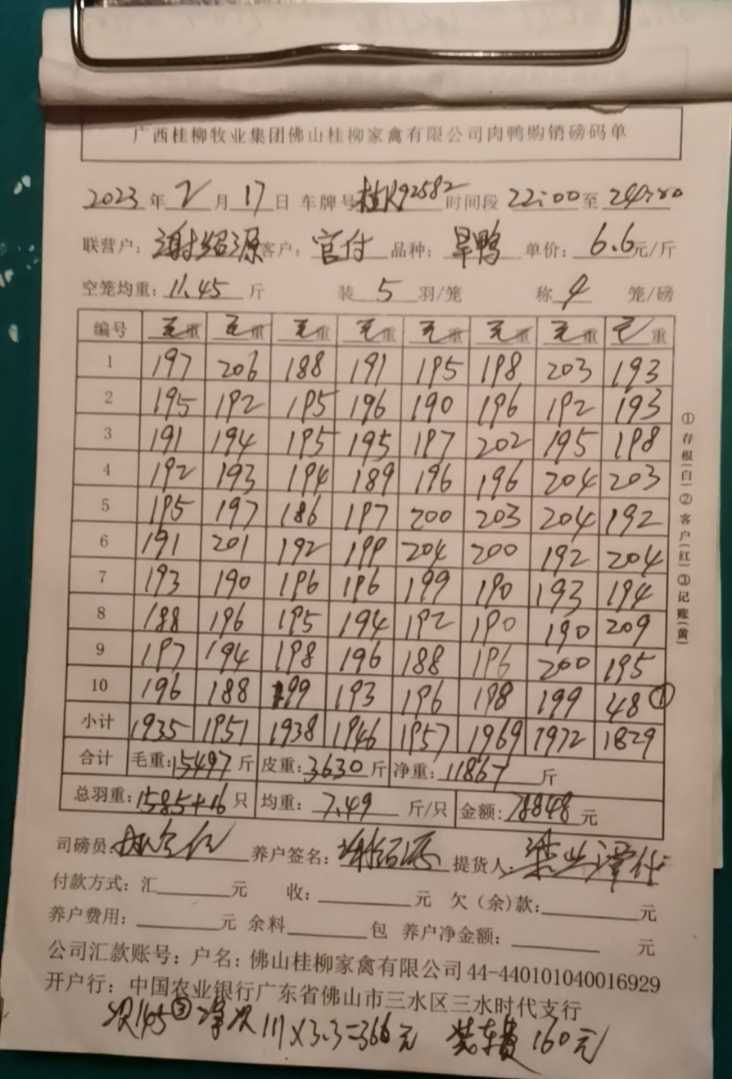 广西桂柳牧业集团佛山桂柳家禽有限公司肉鸭购销磅码单
2023年2月17日 车牌号桂K92582时间段22:00至24:00
联营户：谢绍源 客户：官付 品种：旱鸭 单价：6.6元/斤
空笼均重：11.45斤 装5羽/笼 称4笼/磅
编号 毛重 毛重 毛重 毛重 毛重 毛重 毛重 毛重
1 197 206 188 191 195 198 203 193
2 195 192 195 196 190 196 192 193
3 191 194 195 195 197 202 195 198
4 192 193 194 189 196 196 204 203
5 195 197 186 197 200 203 204 192
6 191 201 192 199 204 200 192 204
7 193 190 196 196 199 190 193 194
8 188 196 195 194 192 190 190 209
9 197 194 198 196 188 196 200 195
10 196 188 199 193 196 198 199 48①
小计 1935 1951 1938 1946 1957 1969 1972 1829
合计 毛重：15497斤 皮重：3630斤 净重：11867斤
总羽重：1585+16只 均重：7.49斤/只 金额：78848元
司磅员： 养户签名： 提货人：
付款方式：汇 元 收： 元 欠（余）款： 元
养户费用： 元 余料 包 养户净金额： 元
公司汇款账号：户名：佛山桂柳家禽有限公司44-440101040016929
开户行：中国农业银行广东省佛山市三水区三水时代支行
次145③净次111×3.3=366元 装车费160元
①存根(白)②客户(红)③记账(黄)